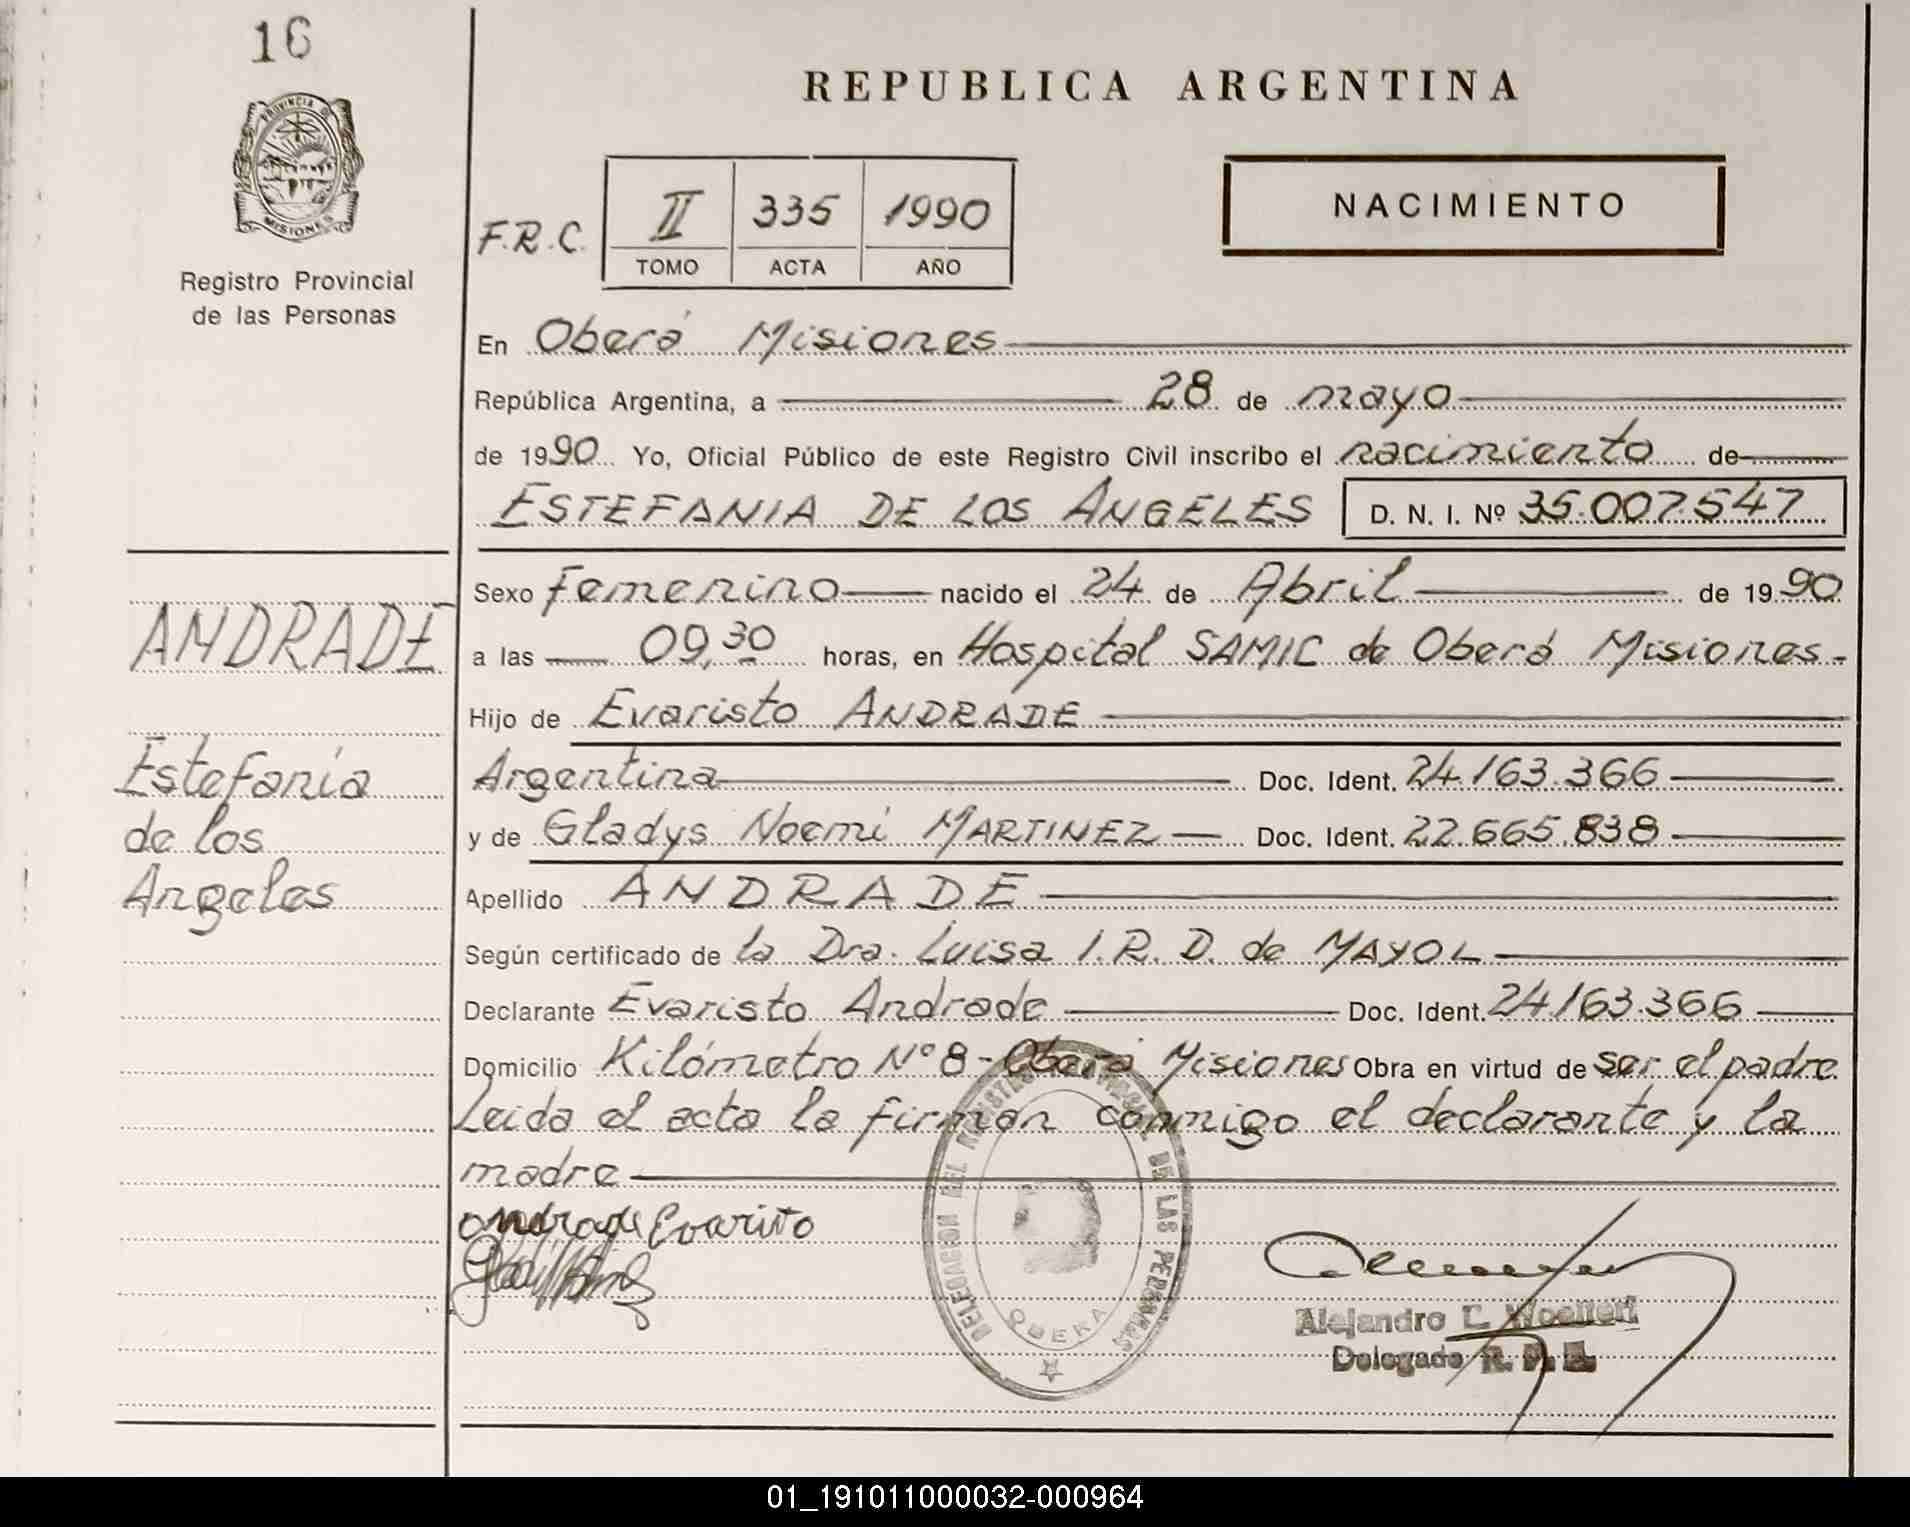 16
PROVINCIA DE
MISIONES
Registro Provincial
de las Personas
REPUBLICA ARGENTINA
NACIMIENTO
F.R.C. II 335 1990
TOMO ACTA AÑO
En Oberá Misiones
República Argentina, a 28 de mayo
de 1990 Yo, Oficial Público de este Registro Civil inscribo el nacimiento de
ESTEFANIA DE LOS ANGELES D. N. I. Nº 35.007.547
ANDRADE
Estefanía
de los
Angeles
Sexo Femenino nacido el 24 de Abril de 1990
a las 09,30 horas, en Hospital SAMIC de Oberá Misiones.-
Hijo de Evaristo ANDRADE
Argentina Doc. Ident. 24.163.366
y de Gladys Noemi MARTINEZ Doc. Ident. 22.665.838
Apellido ANDRADE
Según certificado de la Dra. Luisa I.R.D. de MAYOL
Declarante Evaristo Andrade Doc. Ident. 24.163.366
Domicilio Kilómetro Nº 8 - Oberá Misiones Obra en virtud de ser el padre
Leida el acta la firman conmigo el declarante y la
madre
Andrade Evaristo
DELEGACION DEL REGISTRO PROVINCIAL DE LAS PERSONAS
OBERA
Alejandro
Delegado R. P. P.
01_191011000032-000964